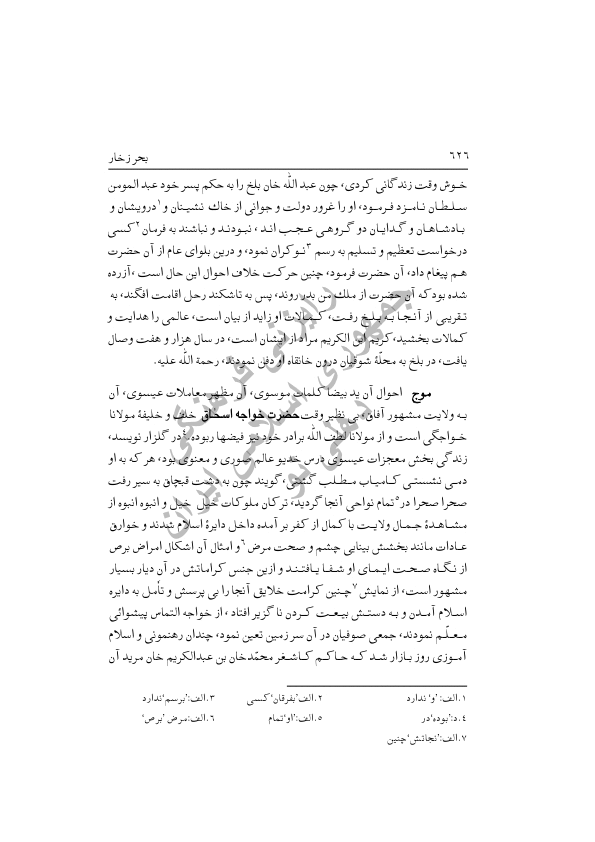 ۶۲۶ بحر زخار
خوش وقت زندگانی کردی، چون عبد اللّٰه خان بلخ را به حکم پسر خود عبد المومن
سلطان نامزد فرمود، او را غرور دولت و جوانی از خاك نشینان و۱درویشان و
بادشاهان و گدایان دو گروهی عجب اند، نبودند و نباشند به فرمان۲کسی
درخواست تعظیم و تسلیم به رسم۳نوکران نمود، و درین بلوای عام از آن حضرت
هم پیغام داد، آن حضرت فرمود، چنین حرکت خلاف احوال این حال است، آزرده
شده بود که آن حضرت از ملك من بدر روند، پس به تاشکند رحل اقامت افگند، به
تقریبی از آنجا به بلخ رفت، کمالات او زاید از بیان است، عالمی را هدایت و
کمالات بخشید، کریم ابن الکریم مراد از ایشان است، در سال هزار و هفت وصال
یافت، در بلخ به محلّهٔ شوقیان درون خانقاه او دفن نمودند، رحمة اللّٰه علیه.
موج احوال آن ید بیضا کلمات موسوی، آن مظهر معاملات عیسوی، آن
به ولایت مشهور آفاق، بی نظیر وقت حضرت خواجه اسحاق خلف و خلیفهٔ مولانا
خواجگی است و از مولانا لطف اللّٰه برادر خود نیز فیضها ربوده.۴در گلزار نویسد،
زندگی بخش معجزات عیسوی درس خدیو عالم صوری و معنوی بود، هر که به او
دمی نشستی کامیاب مطلب گشتی، گویند چون به دشت قبچاق به سیر رفت
صحرا صحرا در۵تمام نواحی آنجا گردید، ترکان ملوکات خیل خیل و انبوه انبوه از
مشاهدهٔ جمال ولایت با کمال از کفر بر آمده داخل دایرهٔ اسلام شدند و خوارق
عادات مانند بخشش بینایی چشم و صحت مرض۶و امثال آن اشکال امراض برص
از نگاه صحت ایمای او شفا یافتند و ازین جنس کراماتش در آن دیار بسیار
مشهور است، از نمایش۷چنین کرامت خلایق آنجا را بی پرسش و تأمل به دایره
اسلام آمدن و به دستش بیعت کردن نا گزیر افتاد، از خواجه التماس پیشوائی
معلّم نمودند، جمعی صوفیان در آن سر زمین تعین نمود، چندان رهنمونی و اسلام
آموزی روز بازار شد که حاکم کاشغر محمّدخان بن عبدالکریم خان مرید آن
۱.الف: ’و‘ ندارد ۲.الف:’بفرقان‘کسی ۳.الف:’برسم‘ندارد
۴.د:’بوده‘در ۵.الف:’او‘تمام ۶.الف:مرض ’برص‘
۷.الف:’نجاتش‘چنین
جمهوری اسلامی ایران
رایزنی فرهنگی
دهلی نو